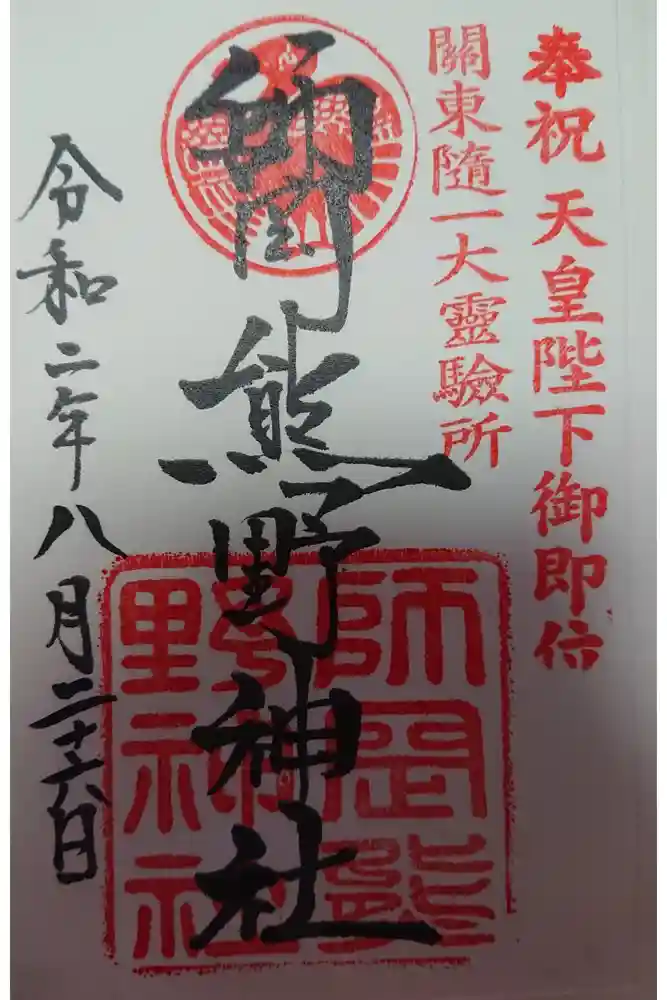 奉祝 天皇陛下御即位
關東隨一大靈驗所
師岡熊野神社
令和二年八月二十六日
師岡熊
野神社